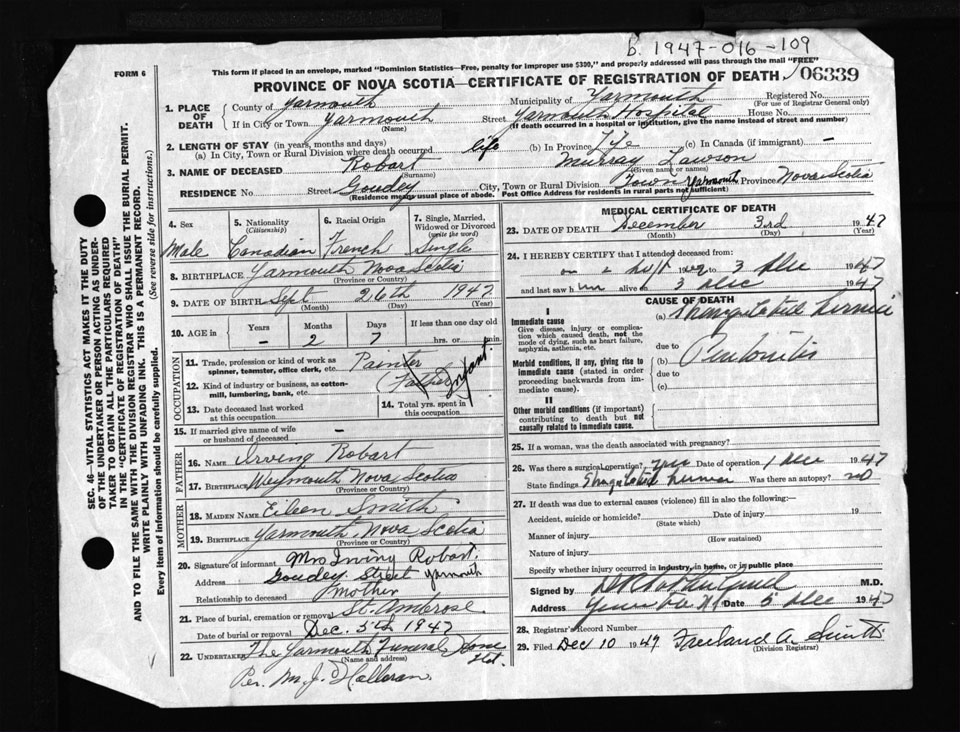 b. 1947-016-109
FORM 6
This form if placed in an envelope, marked "Dominion Statistics—Free, penalty for improper use $300," and properly addressed will pass through the mail "FREE"
PROVINCE OF NOVA SCOTIA—CERTIFICATE OF REGISTRATION OF DEATH 06339
SEC. 46—VITAL STATISTICS ACT MAKES IT THE DUTY
OF THE UNDERTAKER OR PERSON ACTING AS UNDER-
TAKER TO OBTAIN ALL THE PARTICULARS REQUIRED
IN THE "CERTIFICATE OF REGISTRATION OF DEATH"
AND TO FILE THE SAME WITH THE DIVISION REGISTRAR WHO SHALL ISSUE THE BURIAL PERMIT.
WRITE PLAINLY WITH UNFADING INK. THIS IS A PERMANENT RECORD.
Every item of information should be carefully supplied. (See reverse side for instructions.)
1. PLACE OF DEATH
County of Yarmouth Municipality of Yarmouth Registered No.
(For use of Registrar General only)
If in City or Town Yarmouth Street Yarmouth Hospital House No.
(Name) (If death occurred in a hospital or institution, give the name instead of street and number)
2. LENGTH OF STAY (in years, months and days)
(a) In City, Town or Rural Division where death occurred life (b) In Province Life (c) In Canada (if immigrant) —
3. NAME OF DECEASED Robart Murray Lawson
(Surname) (Given name or names)
RESIDENCE No. Street Goudey City, Town or Rural Division Town Yarmouth Province Nova Scotia
(Residence means usual place of abode. Post Office Address for residents in rural parts not sufficient)
4. Sex Male
5. Nationality (Citizenship) Canadian
6. Racial Origin French
7. Single, Married, Widowed or Divorced (write the word) Single
8. BIRTHPLACE Yarmouth Nova Scotia
(Province or Country)
9. DATE OF BIRTH Sept 26th 1947
(Month) (Day) (Year)
10. AGE in Years — Months 2 Days 7 If less than one day old hrs. or min.
OCCUPATION
11. Trade, profession or kind of work as spinner, teamster, office clerk, etc. Painter
12. Kind of industry or business, as cotton-mill, lumbering, bank, etc. (Father) Infant
13. Date deceased last worked at this occupation
14. Total yrs. spent in this occupation
15. If married give name of wife or husband of deceased —
FATHER
16. NAME Irving Robart
17. BIRTHPLACE Weymouth Nova Scotia
(Province or Country)
MOTHER
18. MAIDEN NAME Eileen Smith
19. BIRTHPLACE Yarmouth, Nova Scotia
(Province or Country)
20. Signature of informant Mrs Irving Robart.
Address Goudey Street Yarmouth
Relationship to deceased Mother
21. Place of burial, cremation or removal St. Ambrose
Date of burial or removal Dec. 5th 1947
22. UNDERTAKER The Yarmouth Funeral Home Ltd.
(Name and address)
Per. M. J. Halloran.
MEDICAL CERTIFICATE OF DEATH
23. DATE OF DEATH December 3rd 1947
(Month) (Day) (Year)
24. I HEREBY CERTIFY that I attended deceased from:
3 Dec 1947
and last saw him alive on 3 Dec 1947
CAUSE OF DEATH
I
Immediate cause
Give disease, injury or complication which caused death, not the mode of dying, such as heart failure, asphyxia, asthenia, etc.
(a) Strangulated hernia
due to
Morbid conditions, if any, giving rise to immediate cause (stated in order proceeding backwards from immediate cause).
(b) Peritonitis
due to
(c)
II
Other morbid conditions (if important) contributing to death but not causally related to immediate cause.
25. If a woman, was the death associated with pregnancy?
26. Was there a surgical operation? yes Date of operation 1 Dec 1947
State findings Strangulated hernia Was there an autopsy? no
27. If death was due to external causes (violence) fill in also the following:—
Accident, suicide or homicide? Date of injury 19
(State which)
Manner of injury
(How sustained)
Nature of injury
Specify whether injury occurred in industry, in home, or in public place
Signed by M.D.
Address Date 5 Dec 1947
28. Registrar's Record Number
29. Filed Dec 10 1947 Freeland A. Smith
(Division Registrar)